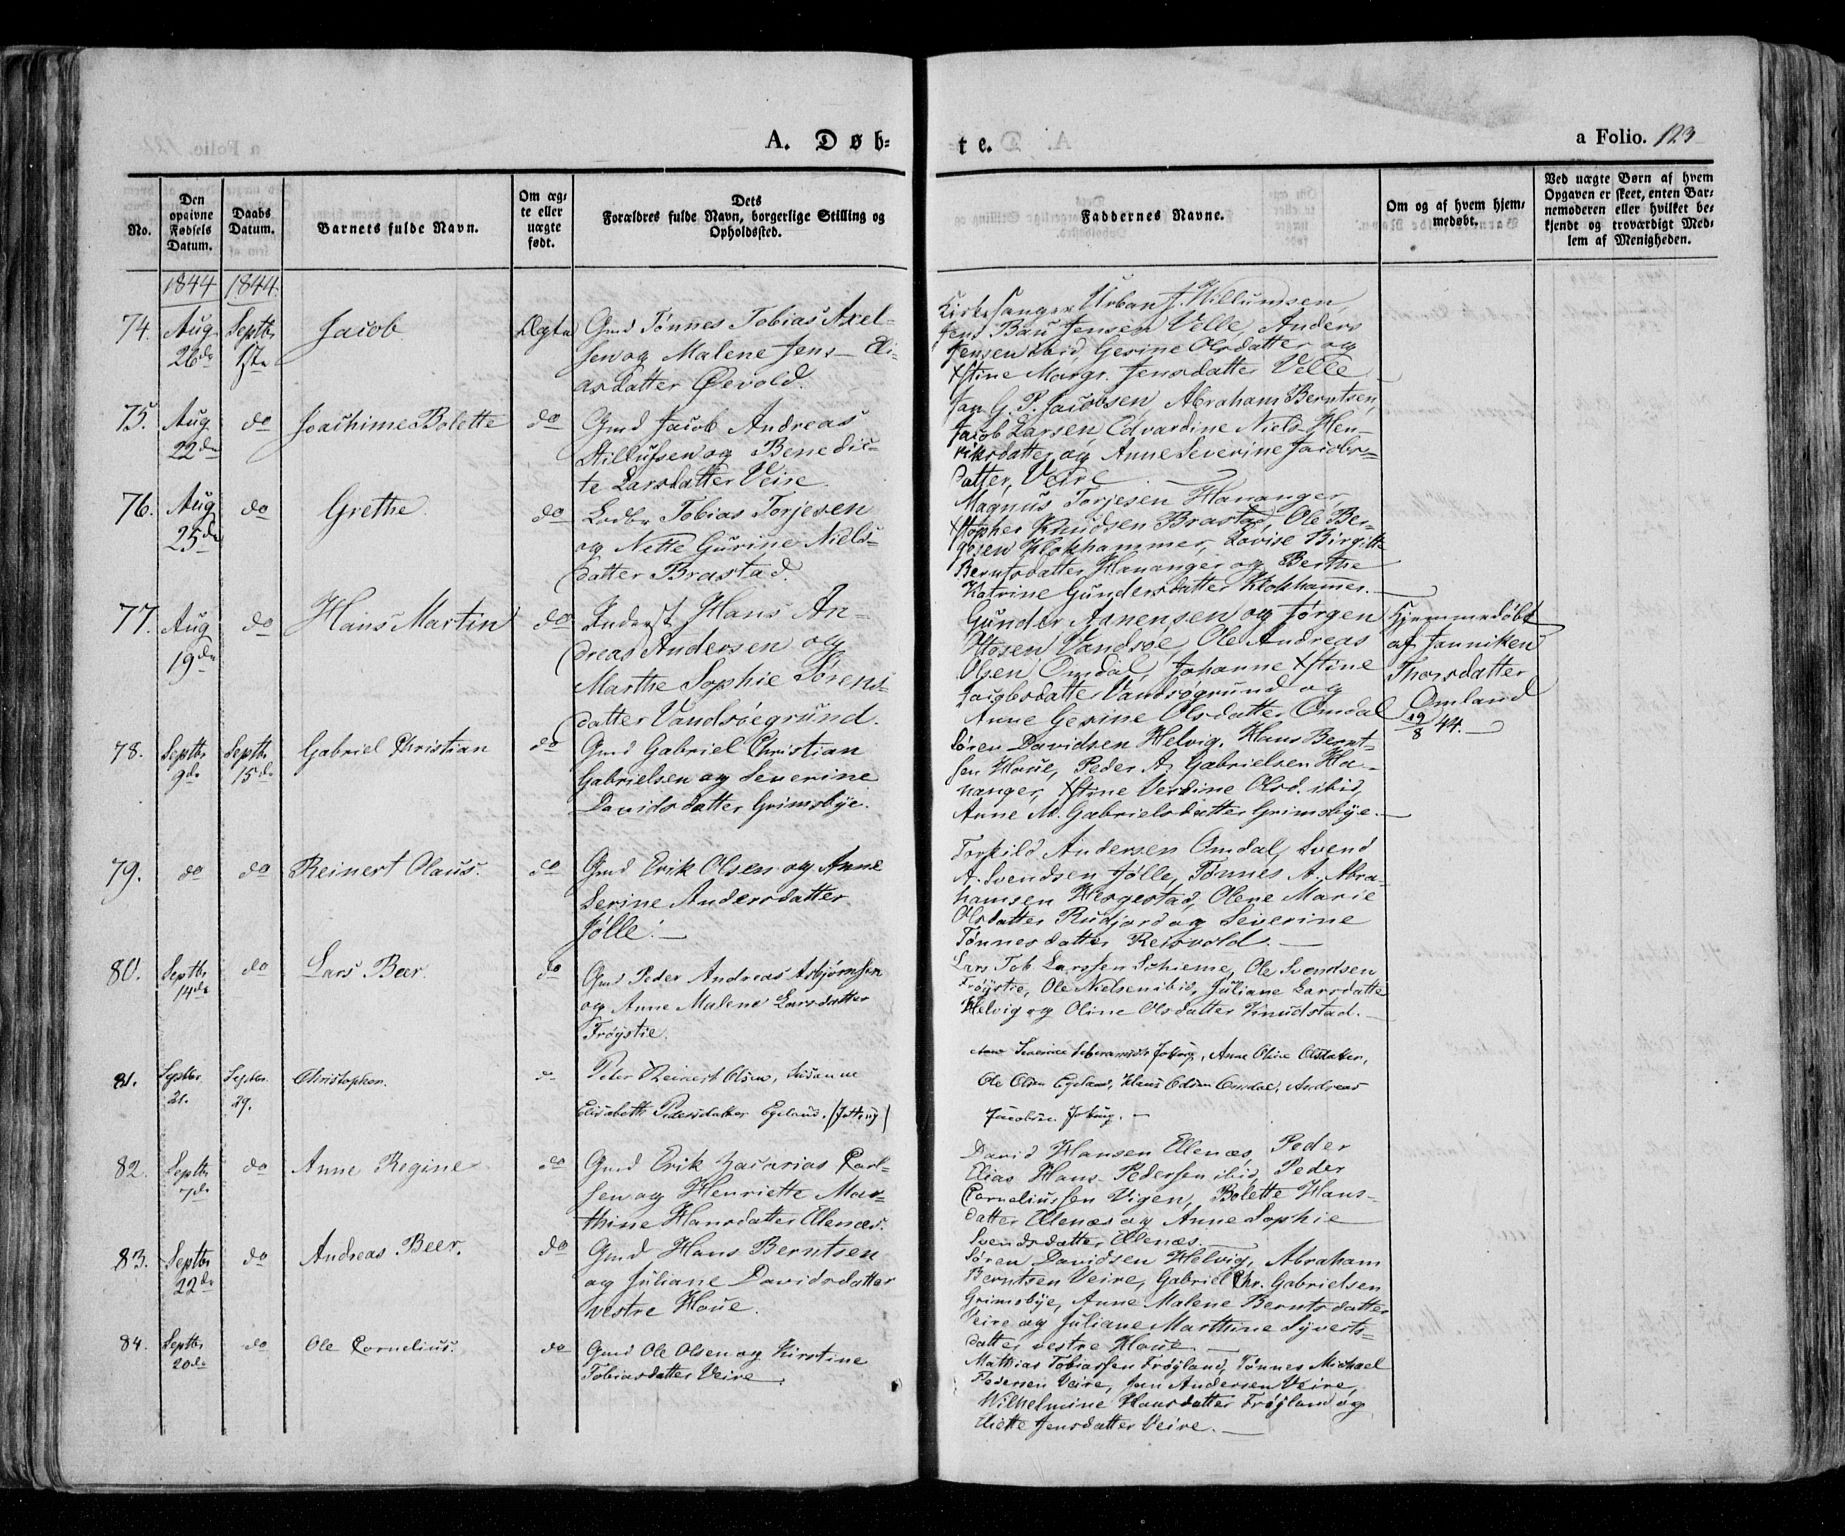 A. Døb-
te.
a Folio. 123
No.
Den opgivne Fødsels Datum.
Daabs Datum.
Barnets fulde Navn.
Om ægte eller uægte født.
Dets
Forældres fulde Navn, borgerlige Stilling og
Opholdssted.
Faddernes Navne.
Om og af hvem hjemmedøbt.
Ved uægte Børn af hvem
Opgaven er skeet, enten Bar-
nemoderen eller hvilket be-
kjendt og troværdigt Med-
lem af Menigheden.
1844 1844.
74. Aug 26de Septbr 1ste Jacob Ægte
Gmd Tønnes Tobias Axel-
sen og Malene Jens Eli-
asdatter Øevold.
Kirkesanger Urban J. Willumsen,
Jens Bau Jensen Velle, Anders
Jensen ibid, Gesine Olsdatter og
Xstine Margr. Jensdatter Velle
75. Aug 22de do Joachime Bolette do
Gmd Jacob Andreas
Stillufsen og Benedic-
te Larsdatter Veire.
Jan G. P. Jacobsen, Abraham Berntsen,
Jacob Larsen, Edvardine Niels Hen-
riksdatter og Anne Severine Jacobs-
datter, Veire
76. Aug 25de do Grethe. do
Tobias Torjesen
og Nette Gurine Niels-
datter Brastad.
Magnus Torjesen Hananger,
Xstopher Knudsen Brastad, Ole Ber-
gesen Klokhammer, Lovise Birgitte
Berntsdatter Hananger og Berthe
Katrine Gundersdatter Klokhamer.
77. Aug 19de do Hans Martin do
Inderst Hans An-
dreas Andersen og
Marthe Sophie Sørens-
datter Vandsøegrund.
Gunder Aanensen og Jørgen
Ottosen Vandsøe, Ole Andreas
Olsen Omdal, Johanne Xstine
Jacobsdatter Vandsøgrund og
Anne Gesine Olsdatter Omdal
Hjemmedøbt
af Janniken
Thorsdatter
Omland
19/8 44.
78. Septbr 9de Septbr 15de Gabriel Christian do
Gmd Gabriel Christian
Gabrielsen og Severine
Davidsdatter Grimsbye.
Søren Davidsen Helvig, Hans Bernt-
sen Houe, Peder A. Gabrielsen Ha-
nanger, Xstine Verdine Olsd. ibid,
Anne M. Gabrielsdatter Grimsbye.
79. do do Reinert Olaus. do
Gmd Erik Olsen og Anne
Serine Andersdatter
Jølle.
Torkild Andersen Omdal, Svend
A. Svendsen Jølle, Tønnes A. Abra-
hamsen Hesgestad, Olene Marie
Olsdatter Rudjord og Severine
Tønnesdatter Reisvold.
80. Septbr 14de do Lars Beer. do
Gmd Peder Andreas Asbjørnsen
og Anne Malene Larsdatter
Frøystie.
Lars Tob. Larssen Schieme, Ole Svendsen
Frøystie, Ole Nielsen ibid, Juliane Larsdatter
Helvig og Oline Olsdatter Knudstad.
81. Septbr 21. Septbr 29. Christopher. do
Peter Reinert Olsen, Susanne
Elisabeth Pedersdatter Egeland.
Severine Anne Oline Olsdatter,
Ole Olsen Egeland, Hans Olsen Omdal, Andreas
Jacobsen
82. Septbr 7de do Anne Regine do
Gmd Erik Zacarias Carl-
sen og Henriette Mar-
thine Hansdatter Ellenæs.
David Hansen Ellenæs, Peder
Elias Hans Pedersen ibid, Peder
Corneliussen Vigen, Bolette Hans-
datter Ellenæs og Anne Sophie
Svendsdatter Ellenæs.
83. Septbr 22de do Andreas Beer. do
Gmd Hans Berntsen
og Juliane Davidsdatter
vestre Houe.
Søren Davidsen Helvig, Abraham
Berntsen Veire, Gabriel Chr. Gabrielsen
Grimsbye, Anne Malene Berntsdatter
Veire og Juliane Marthine Syverts-
datter vestre Houe
84. Septbr 20de do Ole Cornelius. do
Gmd Ole Olsen og Kirstine
Tobiasdatter Veire.
Mathias Tobiassen Frøyland, Tønnes Michael
Pedersen Veire, Jan Andersen Veire,
Wilhelmine Hansdatter Frøyland og
Jensdatter Veire.